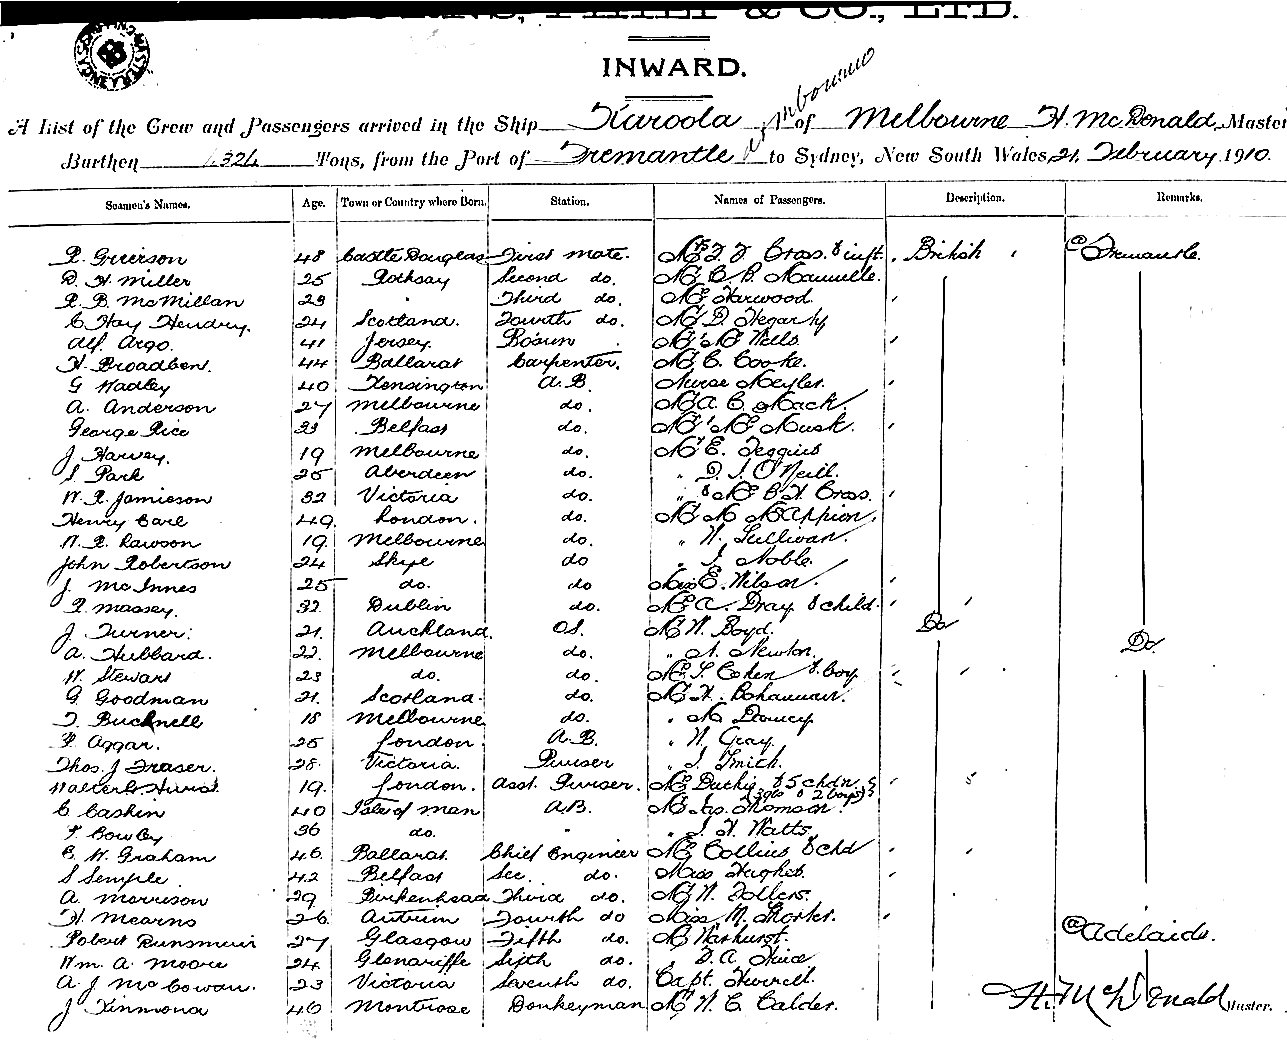 & CO., LTD.
INWARD.
A List of the Crew and Passengers arrived in the Ship Karoola of Melbourne H. McDonald, Master
Burthen Tons, from the Port of Fremantle to Sydney, New South Wales, 21. February 1910.
Seamen's Names. Age. Town or Country where Born. Station. Names of Passengers. Description. Remarks.
R. Grierson 48 Castle Douglas First mate. F. Cross & inft. British @ Fremantle.
D. H. Miller 25 Rothsay Second do.
R. B. McMillan 23 " Third do. Harwood.
C. Hay Hendry. 24 Scotland. Fourth do. D. Hegarty
Alf. Argo. 41 Jersey. Bosun Wells
H. Broadben. 44 Ballarat Carpenter. C. Cooke.
G Hadley 40 Kensington A.B. Nurse Meyler.
A. Anderson 27 Melbourne do. A. C. Mack.
George Rice 33 Belfast do. Musk.
J. Harvey. 19 Melbourne do. E.
S. Park 25 Aberdeen do. " D. J. O'Neill.
W. R. Jamieson 32 Victoria do. " & Cross.
Henry Carl 49. London. do.
W. R. Rawson 19 Melbourne do. " W. Sullivan.
John Robertson 24 Skye do " J. Noble.
J. McInnes 25 do. do Miss E. Wilson.
R. Massey. 32 Dublin do. A. Dray & child.
J. Turner. 21. Auckland. O.S. W. Boyd. Do Do.
A. Hubbard. 22. Melbourne do. " A. Newton.
W. Stewart 23 do. do. Cohen & boy
G. Goodman 21. Scotland. do. H. Bohannan.
T. Bucknell 18 Melbourne do. " M. Doucy
F. Aggar. 25 London. A.B. " W. Gray.
Thos. J. Fraser. 28. Victoria. Purser " J. Smith.
Walter G Hurst 19. London. Asst. Purser. Duthie & 5 chdn
(3 gls & 2 boys)
C Cashin 40 Isle of Man A.B. Jas. Thomson.
F. Cowley 36 do. " " J. H. Watts,
C. W. Graham 46. Ballarat. Chief Engineer Collins & chd
S Semple. 42 Belfast Sec. do. Miss Hughes.
A. Morrison 29 Birkenhead Third do. W. Follers.
H. Mearns 26. Antrim Fourth do Miss M. Shorter.
Robert Dunsmuir 27 Glasgow Fifth do. Warhurst. @ Adelaide.
Wm. A. Moore 24 Glenariffe Sixth do.
A. J. McCowan. 23 Victoria Seventh do. Capt.
J Kinmond 46 Montrose Donkeyman W. C. Calder.
H. McDonald Master.